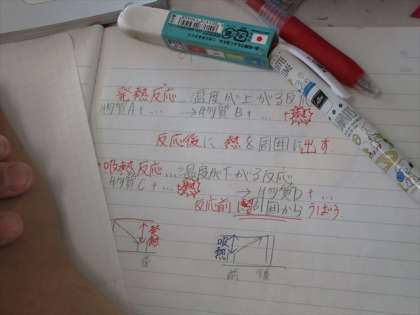 発熱反応…温度が上がる反応
物質A+… →物質B+… +熱
反応後に熱を周囲に出す
・吸熱反応…温度が下がる反応
物質C+…+熱
→物質D+…
反応前 熱 周囲からうばう
発熱
吸熱
前 後